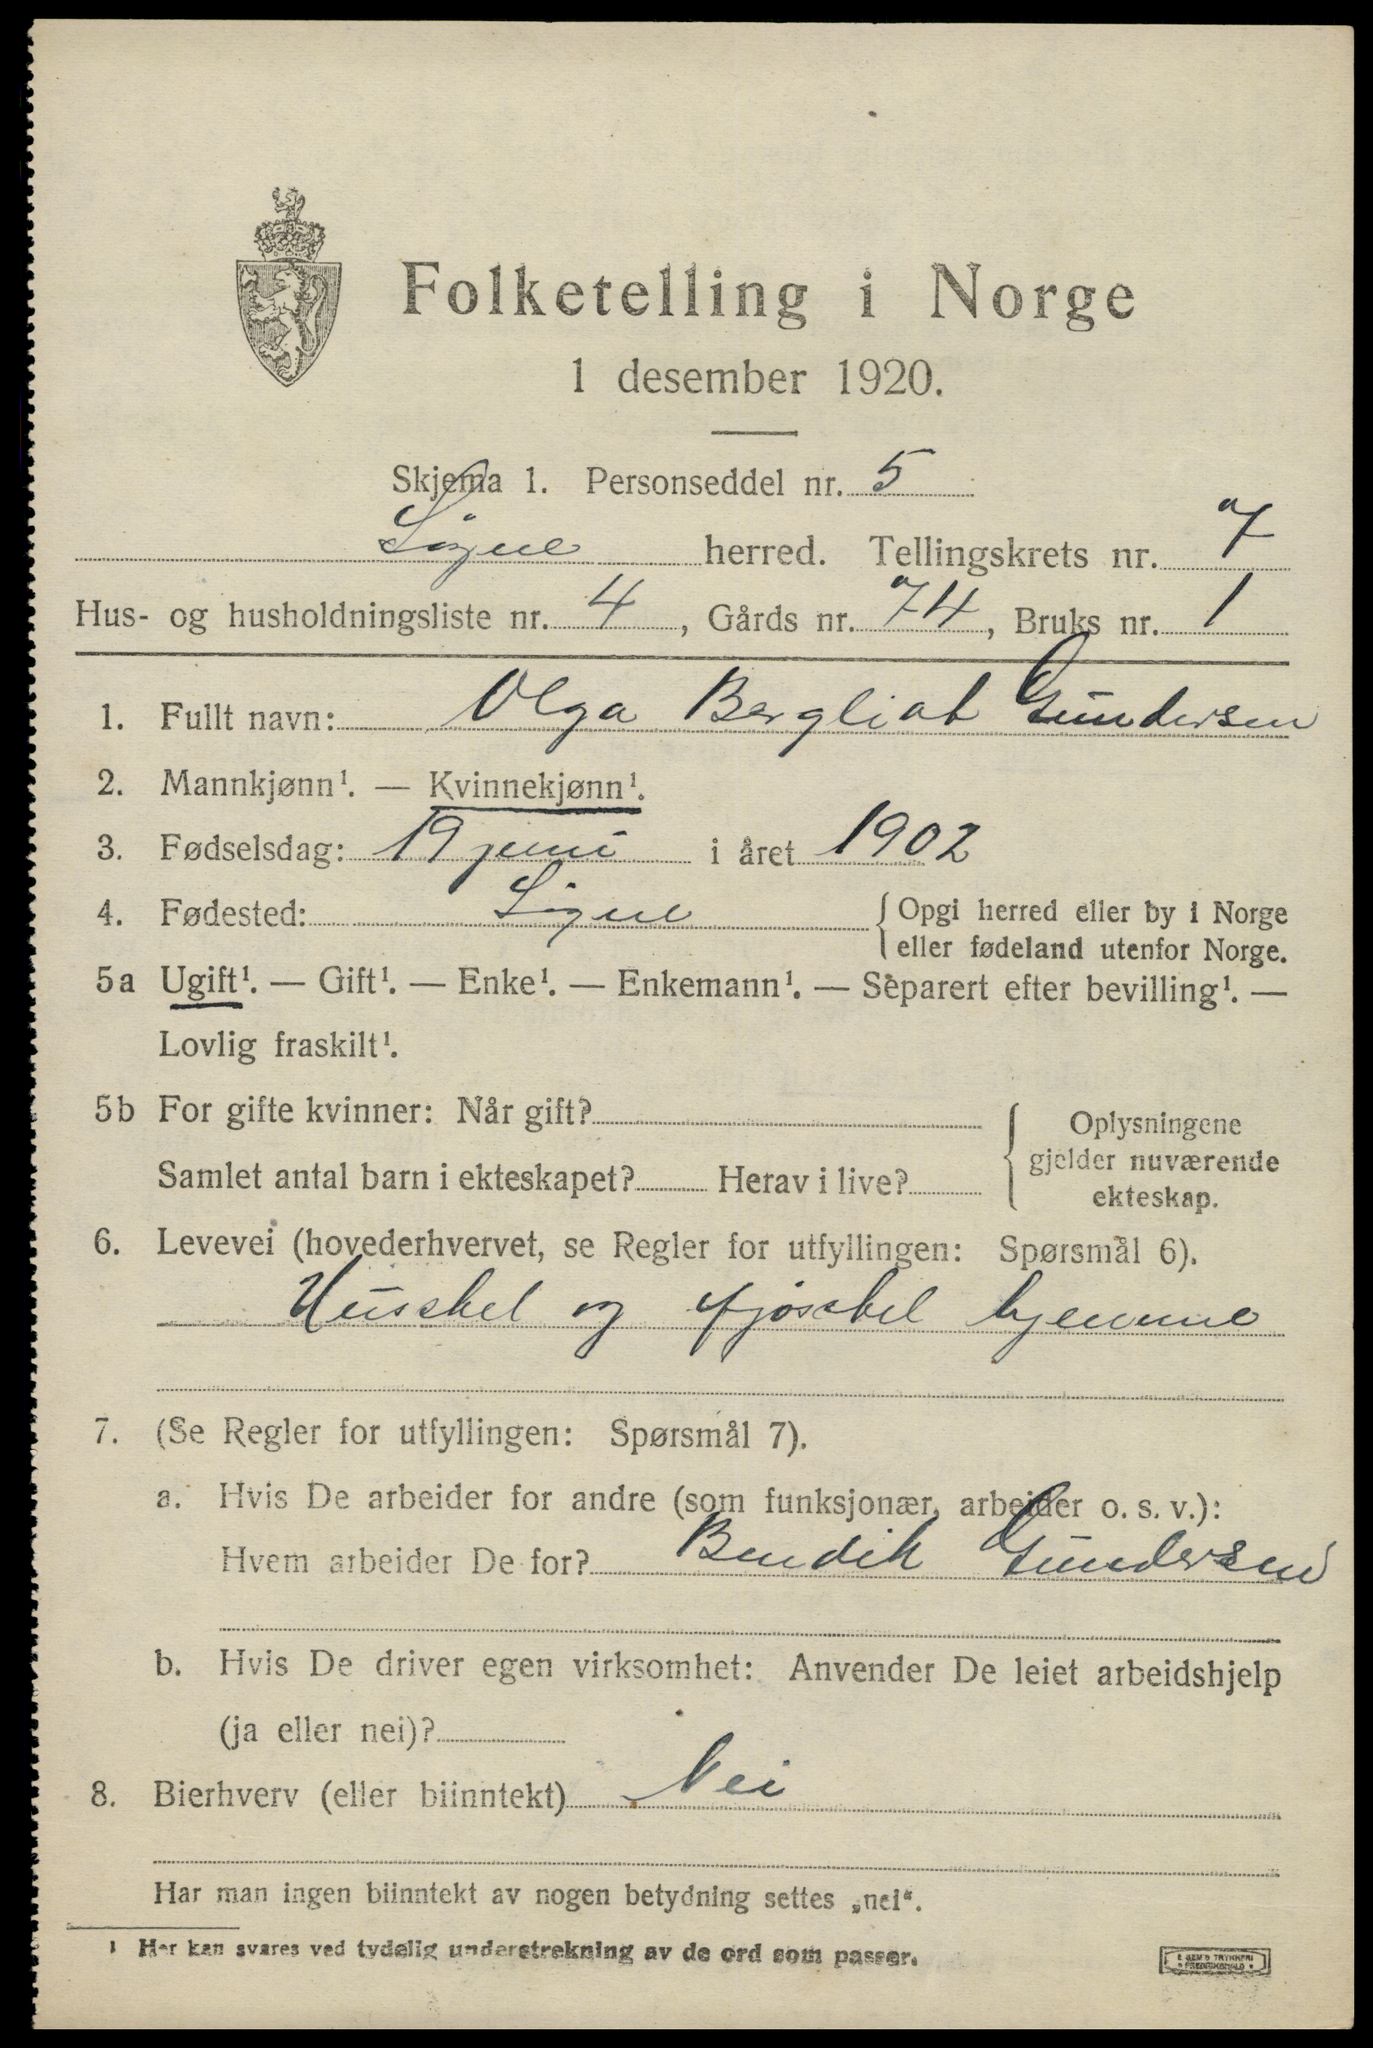 Folketelling i Norge
1 desember 1920.
Skjema 1. Personseddel nr. 5
Søgne herred. Tellingskrets nr. 7
Hus- og husholdningsliste nr. 4, Gårds nr. 74, Bruks nr. 1
1. Fullt navn: Olga Bergliot Gundersen
2. Mannkjønn¹. — Kvinnekjønn¹.
3. Fødselsdag: 19 juni i året 1902
4. Fødested: Søgne { Opgi herred eller by i Norge
eller fødeland utenfor Norge.
5a Ugift¹. — Gift¹. — Enke¹. — Enkemann¹. — Separert efter bevilling¹. —
Lovlig fraskilt¹.
5b For gifte kvinner: Når gift? { Oplysningene
gjelder nuværende
Samlet antal barn i ekteskapet? Herav i live? ekteskap.
6. Levevei (hovederhvervet, se Regler for utfyllingen: Spørsmål 6).
Husstel og fjøsstel hjemme
7. (Se Regler for utfyllingen: Spørsmål 7).
a. Hvis De arbeider for andre (som funksjonær, arbeider o. s. v.):
Hvem arbeider De for? Bendik Gundersen
b. Hvis De driver egen virksomhet: Anvender De leiet arbeidshjelp
(ja eller nei)?
8. Bierhverv (eller biinntekt) Nei
Har man ingen biinntekt av nogen betydning settes „nei“.
¹ Her kan svares ved tydelig understrekning av de ord som passer.